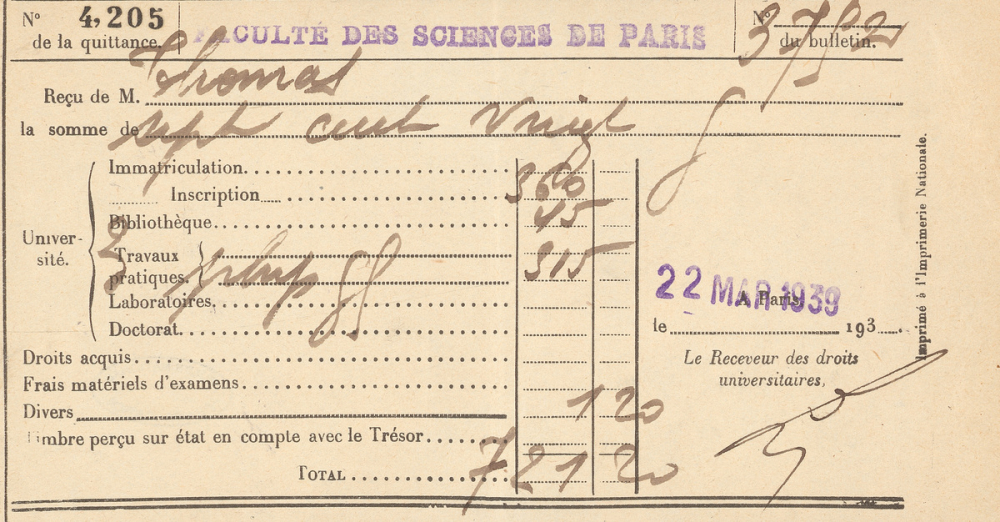 N° 4,205 FACULTÉ DES SCIENCES DE PARIS N°
de la quittance. du bulletin.
Reçu de M. Thomas
la somme de sept cent vingt
Immatriculation
Inscription 360
Bibliothèque 45
Univer-
sité.
Travaux 315
pratiques.
Laboratoires
Doctorat
22 MAR 1939
A Paris,
le 193
Droits acquis
Le Receveur des droits
universitaires,
Frais matériels d'examens
Divers 1 20
Timbre perçu sur état en compte avec le Trésor
TOTAL 721 20
Imprimé à l'Imprimerie Nationale.